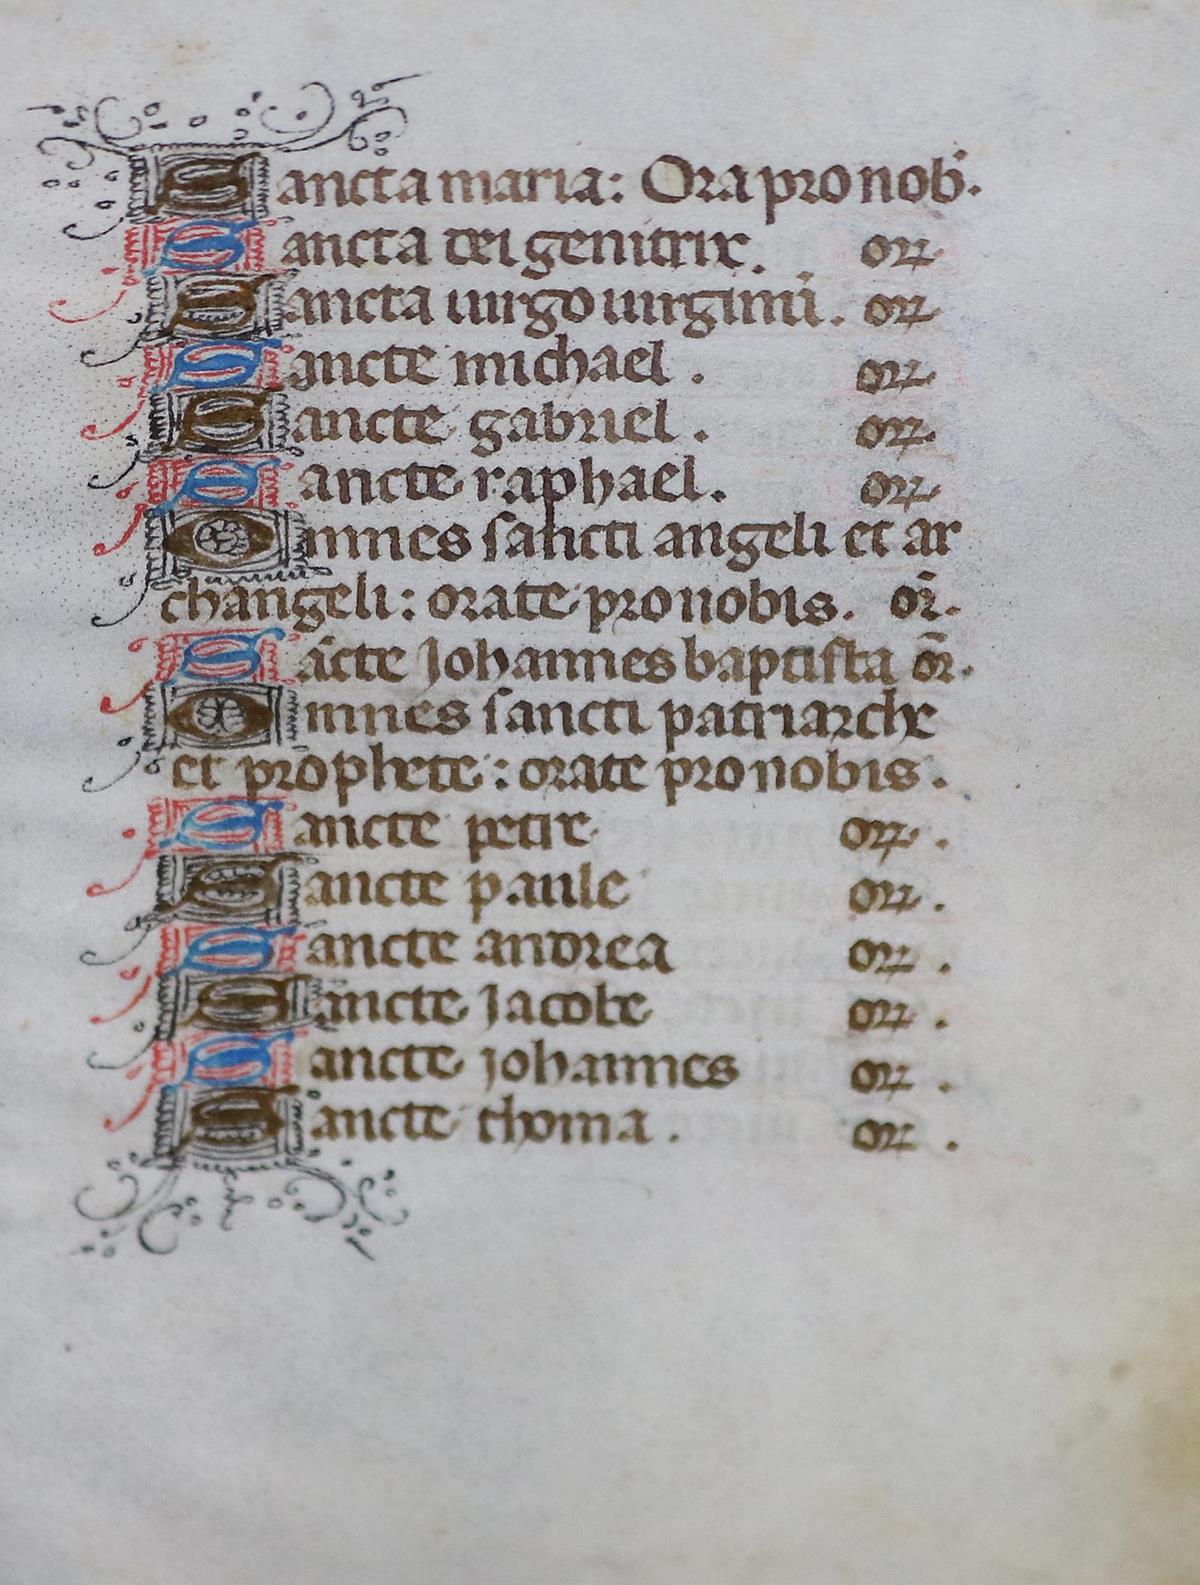 Sancta maria: Ora pro nob̄.
Sancta dei genitrix. or
Sancta uirgo uirginū. or
Sancte michael. or
Sancte gabriel. or
Sancte raphael. or
Omnes sancti angeli et ar
changeli: orate pro nobis. or̄.
Sācte Johannes baptista or̄.
Omnes sancti patriarche
et prophete: orate pro nobis.
Sancte petre or.
Sancte paule or.
Sancte andrea or.
Sancte Jacobe or.
Sancte johannes or.
Sancte thoma. or.